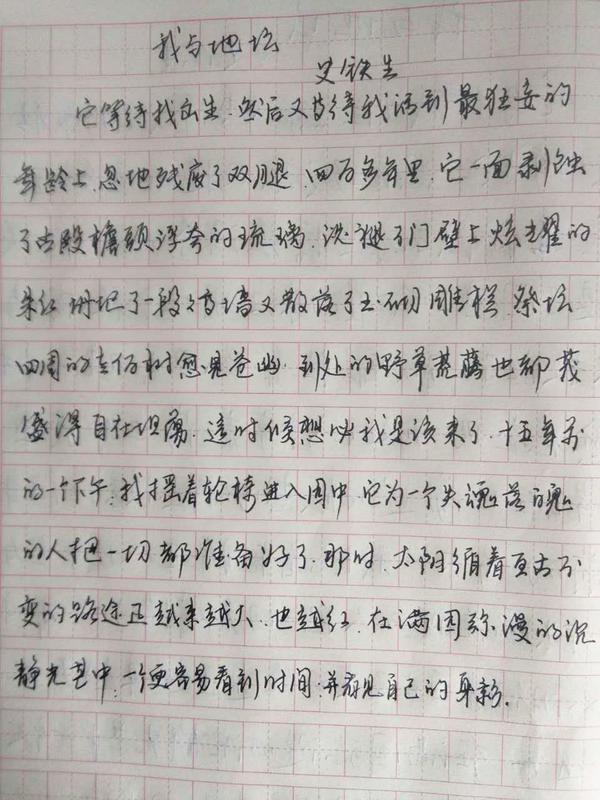 我与地坛
史铁生
它等待我出生,然后又等待我活到最狂妄的
年龄上,忽地残废了双腿,四百多年里,它一面剥蚀
了古殿檐头浮夸的琉璃,淡褪了门壁上炫耀的
朱红,坍圮了一段段高墙又散落了玉砌雕栏,祭坛
四周的老柏树愈见苍幽,到处的野草荒藤也都茂
盛得自在坦荡,这时候想必我是该来了,十五年前
的一个下午,我摇着轮椅进入园中,它为一个失魂落魄
的人把一切都准备好了,那时,太阳循着亘古不
变的路途正越来越大,也越红,在满园弥漫的沉
静光芒中,一个更容易看到时间,并看见自己的身影.